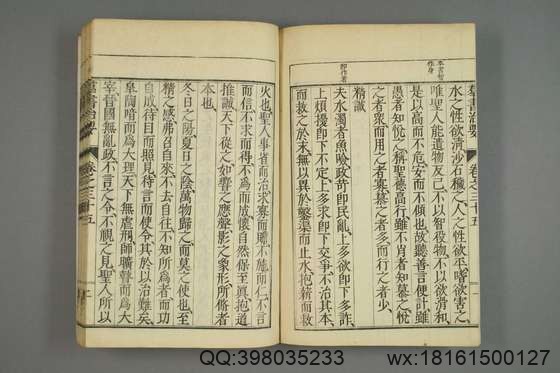 本書智
作身
卽作者
羣書治要 卷之三十五
水之性欲清沙石穢之人之性欲平嗜欲害之
唯聖人能遺物反己不以智役物不以欲滑和
是以高而不危安而不傾也故聽善言便計雖
愚者知悅之稱聖德高行雖不肖者知慕之悅
之者衆而用之者寡慕之者多而行之者少
精誠
夫水濁者魚噞政苛卽民亂上多欲卽下多詐
上煩擾卽下不定上多求卽下交爭不治其本
而救之於末無以異於鑿渠而止水抱薪而救
火也聖人事省而治求寡而贍不施而仁不言
而信不求而得不爲而成懷自然保至眞抱道
推誠天下從之如響之應聲影之象形所修者
本也
冬日之陽夏日之陰萬物歸之而莫之使也至
精之感弗召自來不去自往不知所爲者而功
自成待目而照見待言而使令其於以治難矣
皐陶喑而爲大理天下無虐刑師曠瞽而爲大
宰晉國無亂政不言之令不視之見聖人所以
羣書治要 卷之三十五
QQ:398035233
wx:18161500127